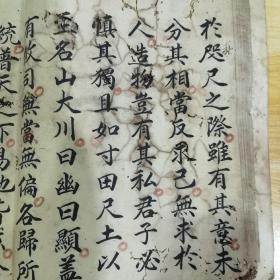 於咫尺之際雖有其意未
分其相當反求己無求於
人造物豈有其私君子必
慎其獨且如寸田尺土以
至名山大川曰幽曰顯蓋
有攸司無當無偏各歸所
統普天之下